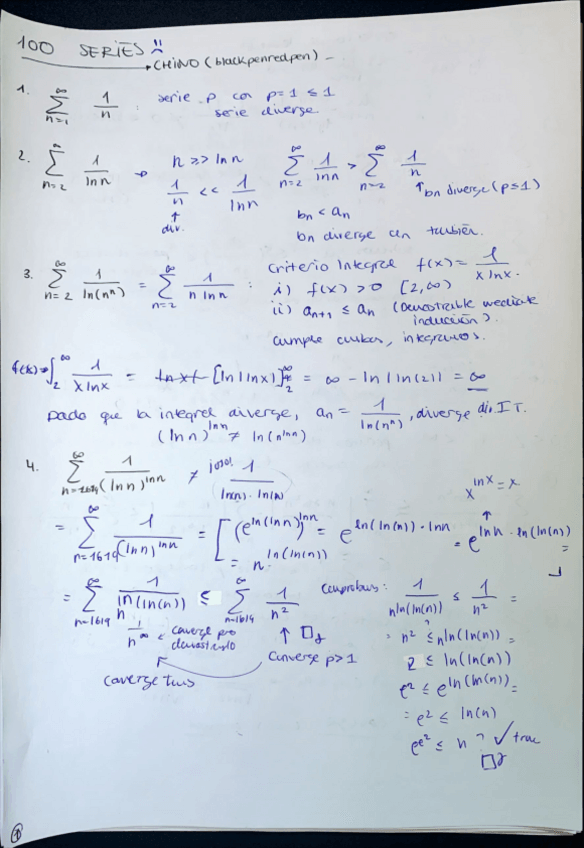 100 SERIES :(
→ CHINO (blackpenredpen)
1. ∑_{n=1}^{∞} 1/n : serie p con p=1 ≤ 1
serie diverge
2. ∑_{n=2}^{∞} 1/ln n → n >> ln n ∑_{n=2}^{∞} 1/ln n > ∑_{n=2}^{∞} 1/n
1/n << 1/ln n ↑ bn diverge (p≤1)
↑ div. bn < an
bn diverge an también.
3. ∑_{n=2}^{∞} 1/ln(n^n) = ∑_{n=2}^{∞} 1/(n ln n) : Criterio Integral f(x) = 1/(x ln x).
i) f(x) > 0 [2,∞)
ii) a_{n+1} ≤ a_n (Demostrable mediante
inducción).
cumple ambas, integramos.
∫_2^∞ 1/(x ln x) = [ln|ln x|]_2^∞ = ∞ - ln|ln(2)| = ∞
Dado que la integral diverge, an = 1/ln(n^n), diverge IT.
(ln n)^{ln n} ≠ ln(n^{ln n})
4. ∑_{n=1619}^{∞} 1/(ln n)^{ln n} ≠ ¡ojo! 1/(ln(n)·ln(n))
x^{ln x} = x
= ∑_{n=1619}^{∞} 1/(ln n)^{ln n} = [(e^{ln(ln n)})^{ln n} = e^{ln(ln(n))·ln n} = e^{ln n·ln(ln(n))} =
= n^{ln(ln(n))} ]
= ∑_{n=1619}^{∞} 1/n^{ln(ln(n))} ≤ ∑_{n=1619}^{∞} 1/n² Comprobus: 1/n^{ln(ln(n))} ≤ 1/n² =
1/n^∞ < converge pero demostrarlo ↑ □ = n² ≤ n^{ln(ln(n))} =
converge p>1 2 ≤ ln(ln(n))
converge tmb e² ≤ e^{ln(ln(n))} =
= e² ≤ ln(n)
e^{e²} ≤ n ? ✓ true
□
1